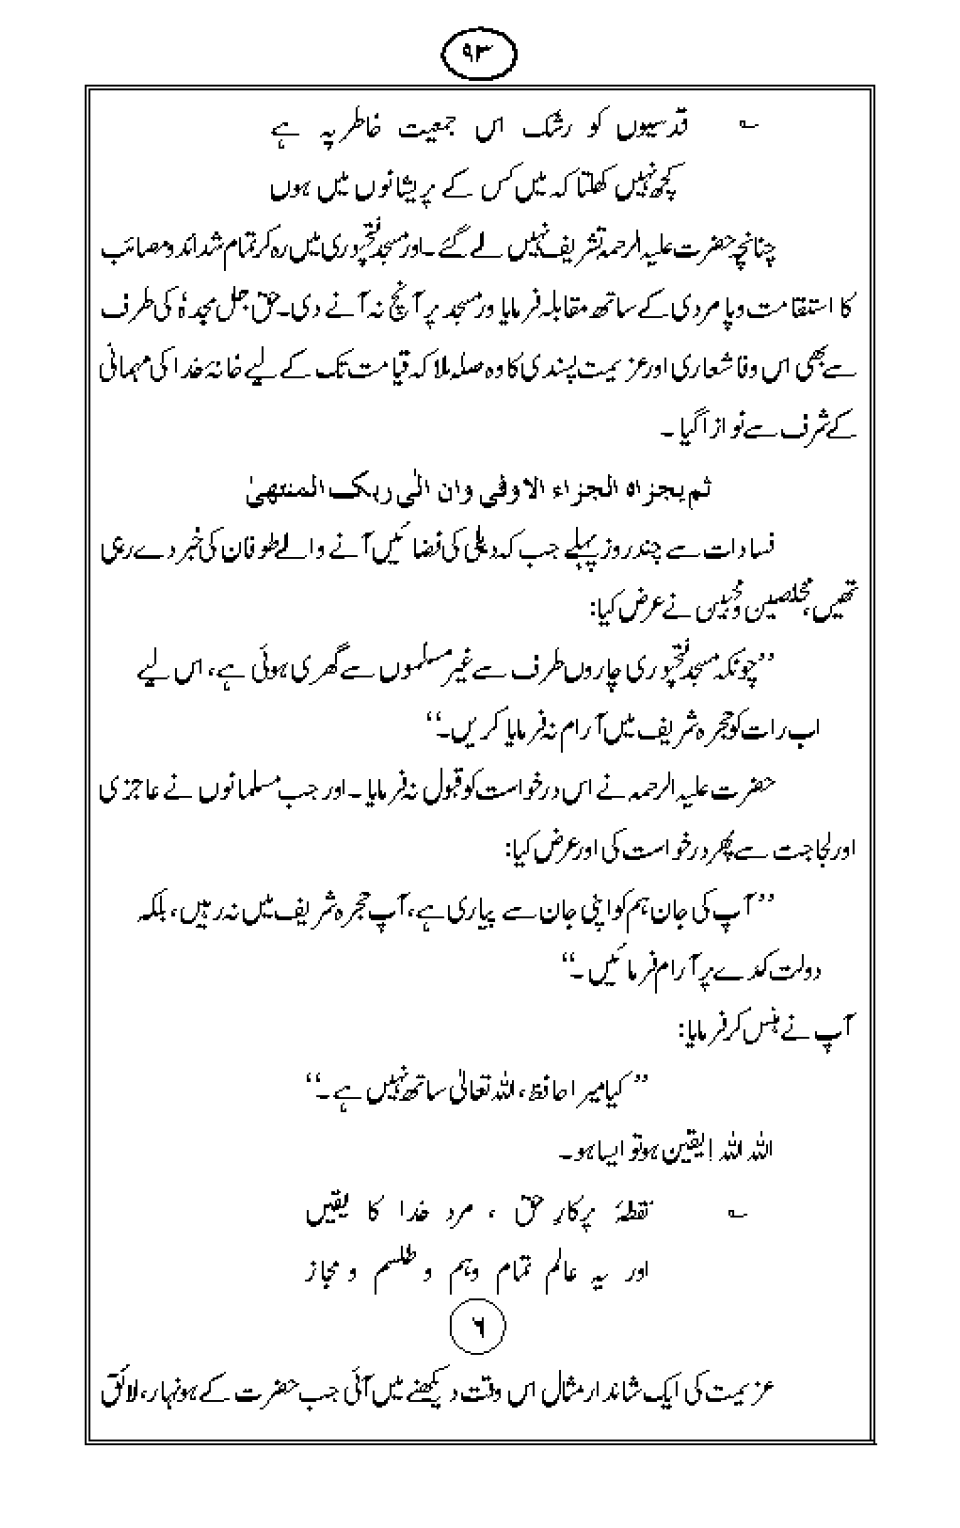 ۹۳
؎ قدسیوں کو رشک اس جمعیت خاطر پہ ہے
کچھ نہیں کھلتا کہ میں کس کے پریشانوں میں ہوں
چنانچہ حضرت علیہ الرحمہ تشریف نہیں لے گئے۔ اور مسجد فتحپوری میں رہ کر تمام شدائد و مصائب
کا استقامت و پامردی کے ساتھ مقابلہ فرمایا ور مسجد پر آنچ نہ آنے دی۔ حق جل مجدہٗ کی طرف
سے بھی اس وفا شعاری اور عزیمت پسندی کا وہ صلہ ملا کہ قیامت تک کے لیے خانۂ خدا کی مہمانی
کے شرف سے نوازا گیا ۔
ثم یجزاہ الجزاء الاوفی وان الٰی ربک المنتھیٰ
فسادات سے چند روز پہلے جب کہ دہلی کی فضائیں آنے والے طوفان کی خبر دے رہی
تھیں، مخلصین و محبین نے عرض کیا:
’’چونکہ مسجد فتحپوری چاروں طرف سے غیر مسلموں سے گھری ہوئی ہے، اس لیے
اب رات کو حجرہ شریف میں آرام نہ فرمایا کریں۔‘‘
حضرت علیہ الرحمہ نے اس درخواست کو قبول نہ فرمایا ۔ اور جب مسلمانوں نے عاجزی
اور لجاجت سے پھر درخواست کی اور عرض کیا:
’’آپ کی جان ہم کو اپنی جان سے پیاری ہے، آپ حجرہ شریف میں نہ رہیں، بلکہ
دولت کدے پر آرام فرمائیں ۔‘‘
آپ نے ہنس کر فرمایا:
’’کیا میرا حافظ، اللہ تعالیٰ ساتھ نہیں ہے۔‘‘
اللہ اللہ! یقین ہو تو ایسا ہو۔
؎ نقطۂ پرکارِ حق ، مرد خدا کا یقیں
اور یہ عالم تمام وہم و طلسم و مجاز
۶
عزیمت کی ایک شاندار مثال اس وقت دیکھنے میں آئی جب حضرت کے ہونہار، لائق